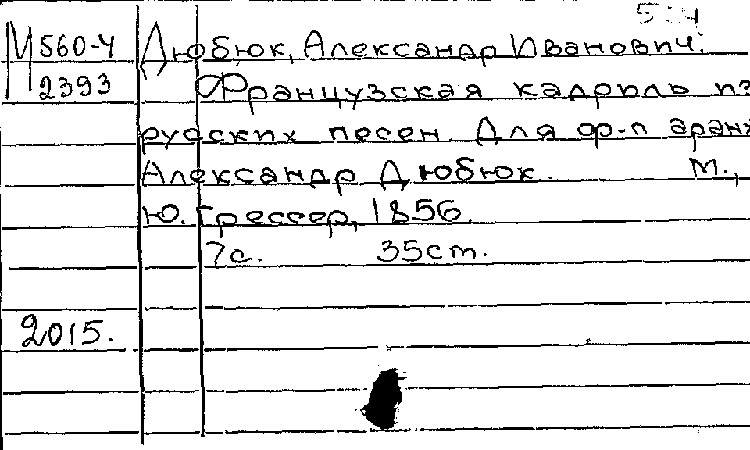 М 560-4 Дюбюк, Александр Иванович.
2393 Французская кадриль из
русских песен. Для ф-п аранж
Александр Дюбюк. М.,
Ю. Грессер, 1856.
7с. 35cm.
2015.